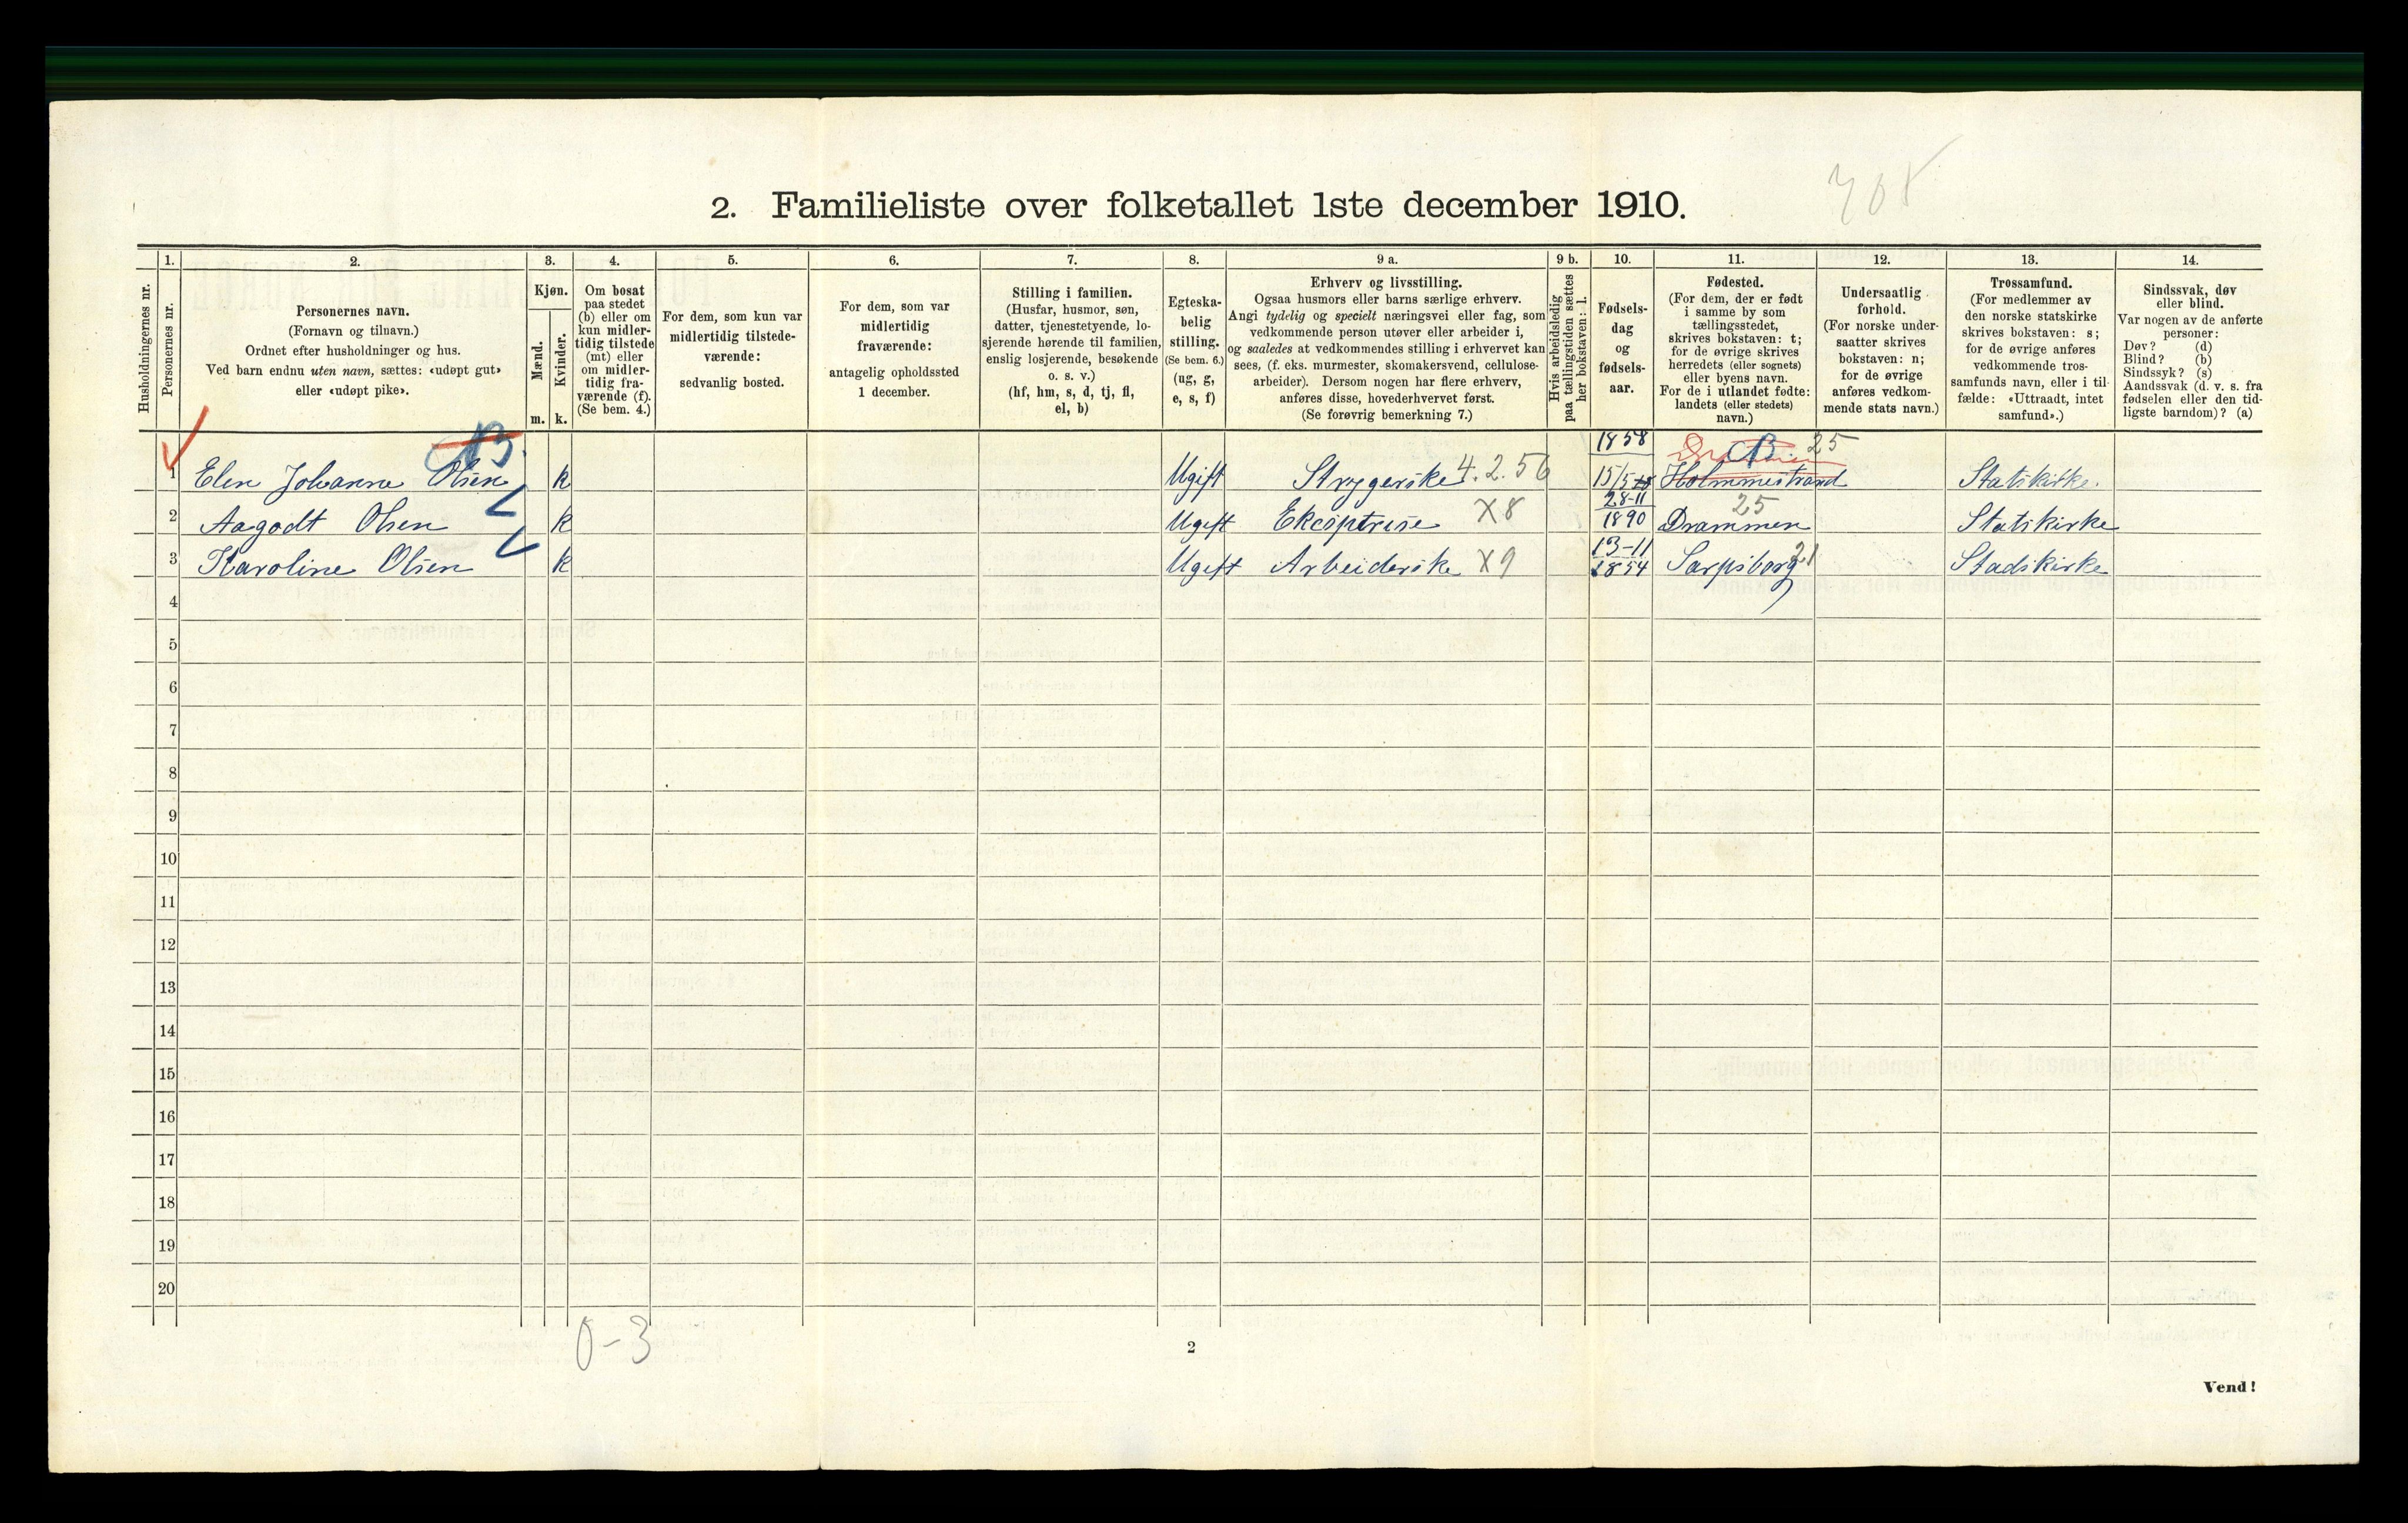 708
2. Familieliste over folketallet 1ste december 1910.
Husholdningernes nr.
1.
Personernes nr.
2.
Personernes navn.
(Fornavn og tilnavn.)
Ordnet efter husholdninger og hus.
Ved barn endnu uten navn, sættes: «udøpt gut»
eller «udøpt pike».
3.
Kjøn.
Mænd.
Kvinder.
m. k.
4.
Om bosat
paa stedet
(b) eller om
kun midler-
tidig tilstede
(mt) eller
om midler-
tidig fra-
værende (f).
(Se bem. 4.)
5.
For dem, som kun var
midlertidig tilstede-
værende:
sedvanlig bosted.
6.
For dem, som var
midlertidig
fraværende:
antagelig opholdssted
1 december.
7.
Stilling i familien.
(Husfar, husmor, søn,
datter, tjenestetyende, lo-
sjerende hørende til familien,
enslig losjerende, besøkende
o. s. v.)
(hf, hm, s, d, tj, fl,
el, b)
8.
Egteska-
belig
stilling.
(Se bem. 6.)
(ug, g,
e, s, f)
9 a.
Erhverv og livsstilling.
Ogsaa husmors eller barns særlige erhverv.
Angi tydelig og specielt næringsvei eller fag, som
vedkommende person utøver eller arbeider i,
og saaledes at vedkommendes stilling i erhvervet kan
sees, (f. eks. murmester, skomakersvend, cellulose-
arbeider). Dersom nogen har flere erhverv,
anføres disse, hovederhvervet først.
(Se forøvrig bemerkning 7.)
9 b.
Hvis arbeidsledig
paa tællingstiden sættes
her bokstaven: l.
10.
Fødsels-
dag
og
fødsels-
aar.
11.
Fødested.
(For dem, der er født
i samme by som
tællingsstedet,
skrives bokstaven: t;
for de øvrige skrives
herredets (eller sognets)
eller byens navn.
For de i utlandet fødte:
landets (eller stedets)
navn.)
12.
Undersaatlig
forhold.
(For norske under-
saatter skrives
bokstaven: n;
for de øvrige
anføres vedkom-
mende stats navn.)
13.
Trossamfund.
(For medlemmer av
den norske statskirke
skrives bokstaven: s;
for de øvrige anføres
vedkommende tros-
samfunds navn, eller i til-
fælde: «Uttraadt, intet
samfund».)
14.
Sindssvak, døv
eller blind.
Var nogen av de anførte
personer:
Døv? (d)
Blind? (b)
Sindssyk? (s)
Aandssvak (d. v. s. fra
fødselen eller den tid-
ligste barndom)? (a)
B. 1858 B 25
1 Elen Johanne Olsen k Ugift Strygerske 4.2.56 15/5 Holmmestrand Statskirke.
2 Aagodt Olsen k Ugift Ekcsptrise X8 28-11 1890 Drammen 25 Statskirke
3 Karoline Olsen k Ugift Arbeiderske X9 13-11 1854 Sarpsborg 21 Stadskirke
4
5
6
7
8
9
10
11
12
13
14
15
16
17
18
19
20
0-3
2
Vend!